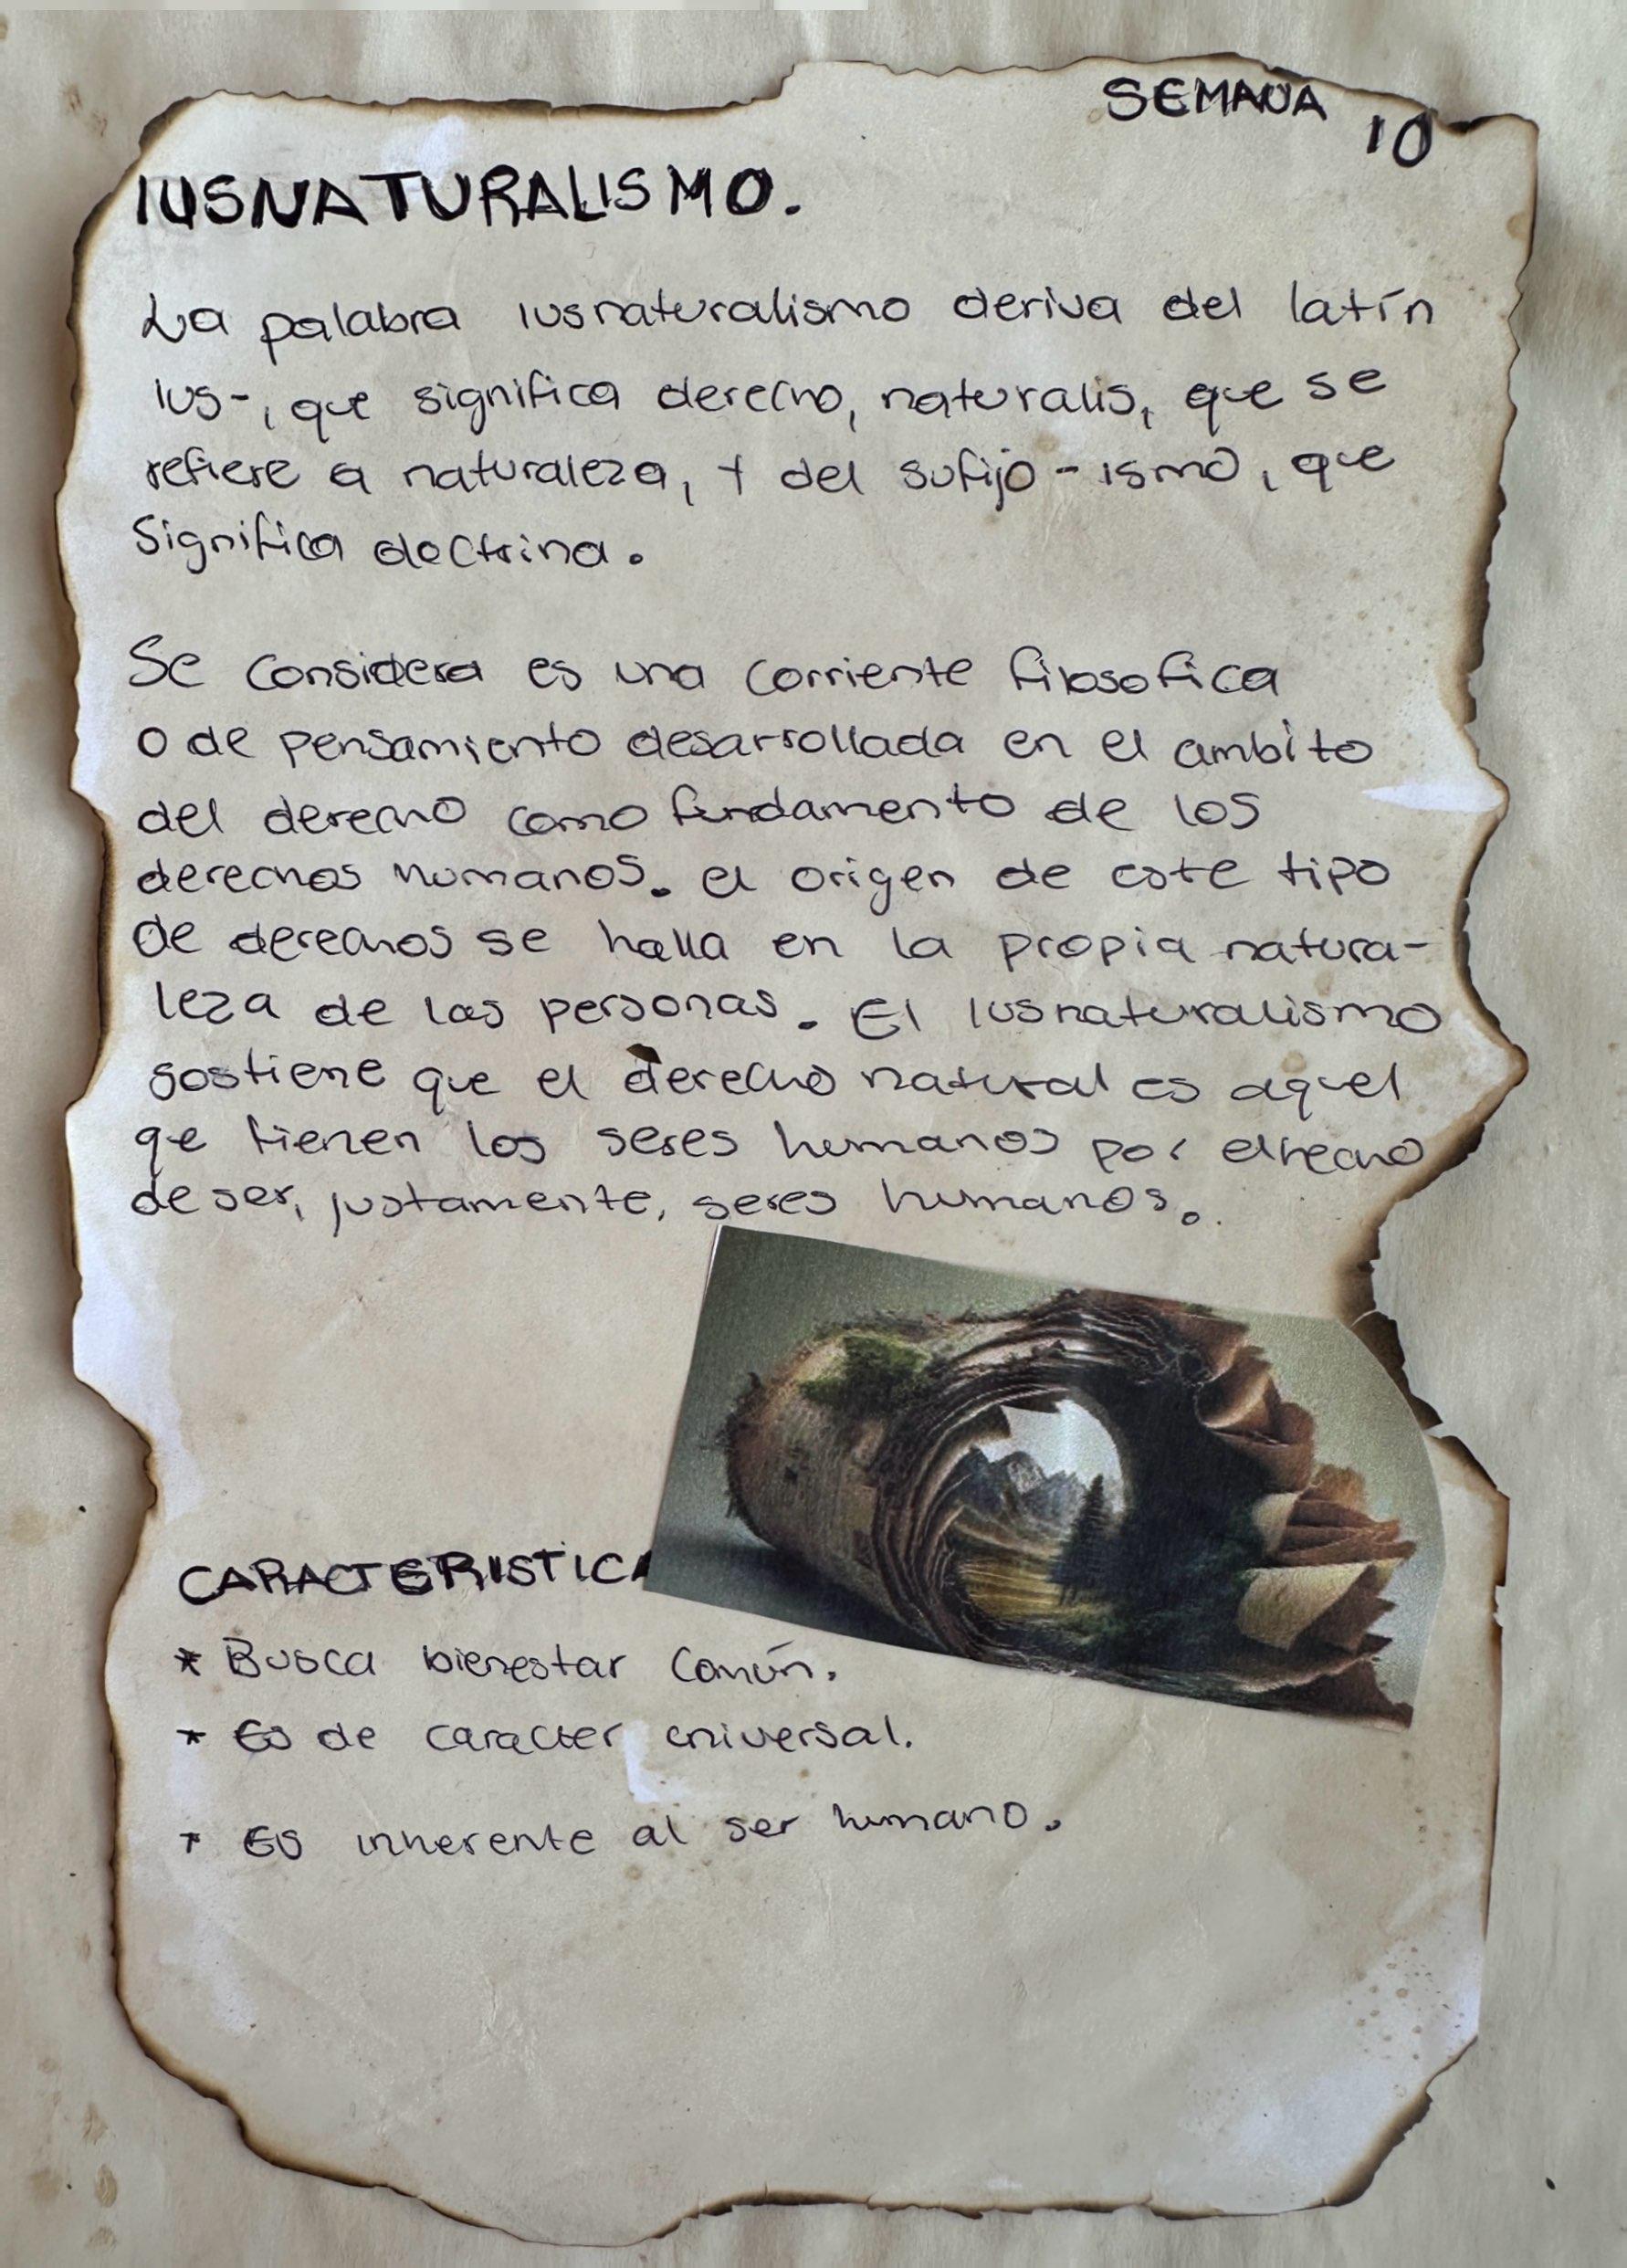 SEMANA 10
IUSNATURALISMO.
La palabra iusnaturalismo deriva del latín
ius-, que significa derecho, naturalis, que se
refiere a naturaleza, y del sufijo -ismo, que
significa doctrina.
Se considera es una corriente filosofica
o de pensamiento desarrollada en el ambito
del derecho como fundamento de los
derechos humanos. el origen de este tipo
de derechos se halla en la propia natura-
leza de las personas. El iusnaturalismo
sostiene que el derecho natural es aquel
qe tienen los seres humanos por el hecho
de ser, justamente, seres humanos.
CARACTERISTICA
* Busca bienestar común.
* Es de caracter universal.
* Es inherente al ser humano.